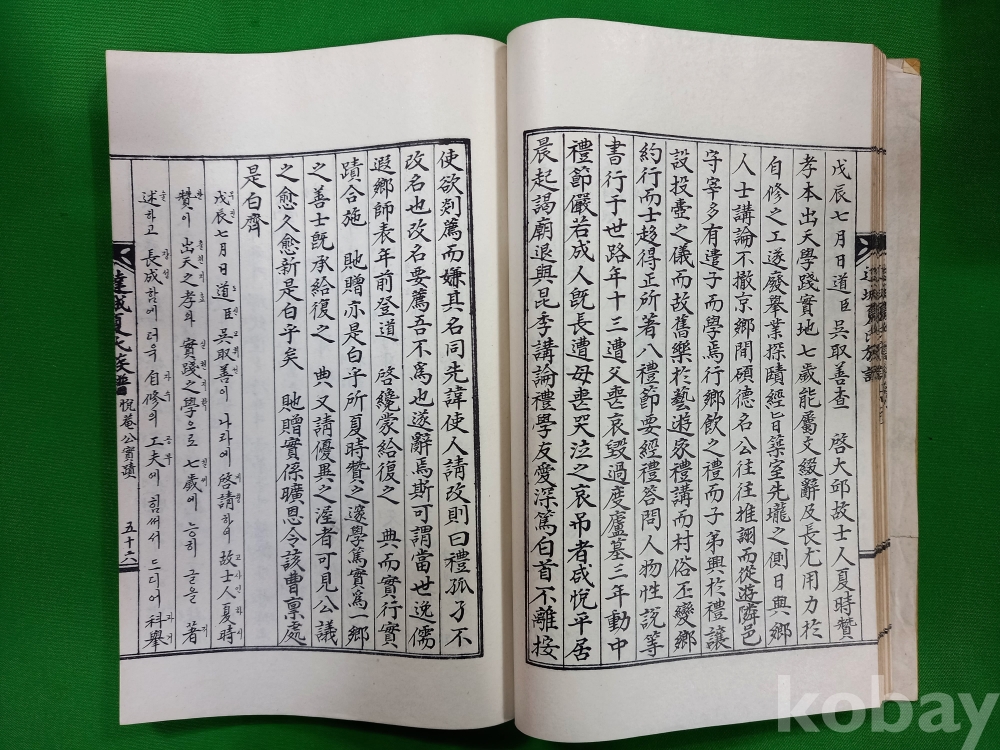 戊辰七月日道臣 吳取善查 啓大邱故士人夏時贊
孝本出天學踐實地七歲能屬文綴辭及長尤用力於
自修之工遂廢擧業探賾經旨築室先壠之側日與鄕
人士講論不撤京鄕間碩德名公往往推詡而從遊隣邑
守宰多有遣子而學焉行鄕飮之禮而子弟興於禮讓
設投壺之儀而故舊樂於藝遊家禮講而村俗丕變鄕
約行而士趍得正所著八禮節要經禮答問人物性說等
書行于世路年十三遭父喪哀毁過度廬墓三年動中
禮節儼若成人旣長遭母喪哭泣之哀吊者咸悅平居
晨起謁廟退與昆季講論禮學友愛深篤白首不離按
使欲剡薦而嫌其名同先諱使人請改則曰禮孤子不
改名也改名要薦吾不爲也遂辭焉斯可謂當世逸儒
遐鄕師表年前登道 啓纔蒙給復之 典而實行實
蹟合施 貤贈亦是白乎所夏時贊之邃學篤實爲一鄕
之善士旣承給復之 典又請優異之渥者可見公議
之愈久愈新是白乎矣 貤贈實係曠恩今該曹稟處
是白齊
戊辰七月日道臣吳取善이 나라에 啓請하여 故士人夏時
贊이 出天之孝와 實踐之學으로 七歲에 능히 글을 著
述하고 長成함에 더욱 自修의 工夫에 힘써서 드디어 科擧
達城夏氏族譜 悅菴公實蹟 五十六
kobay